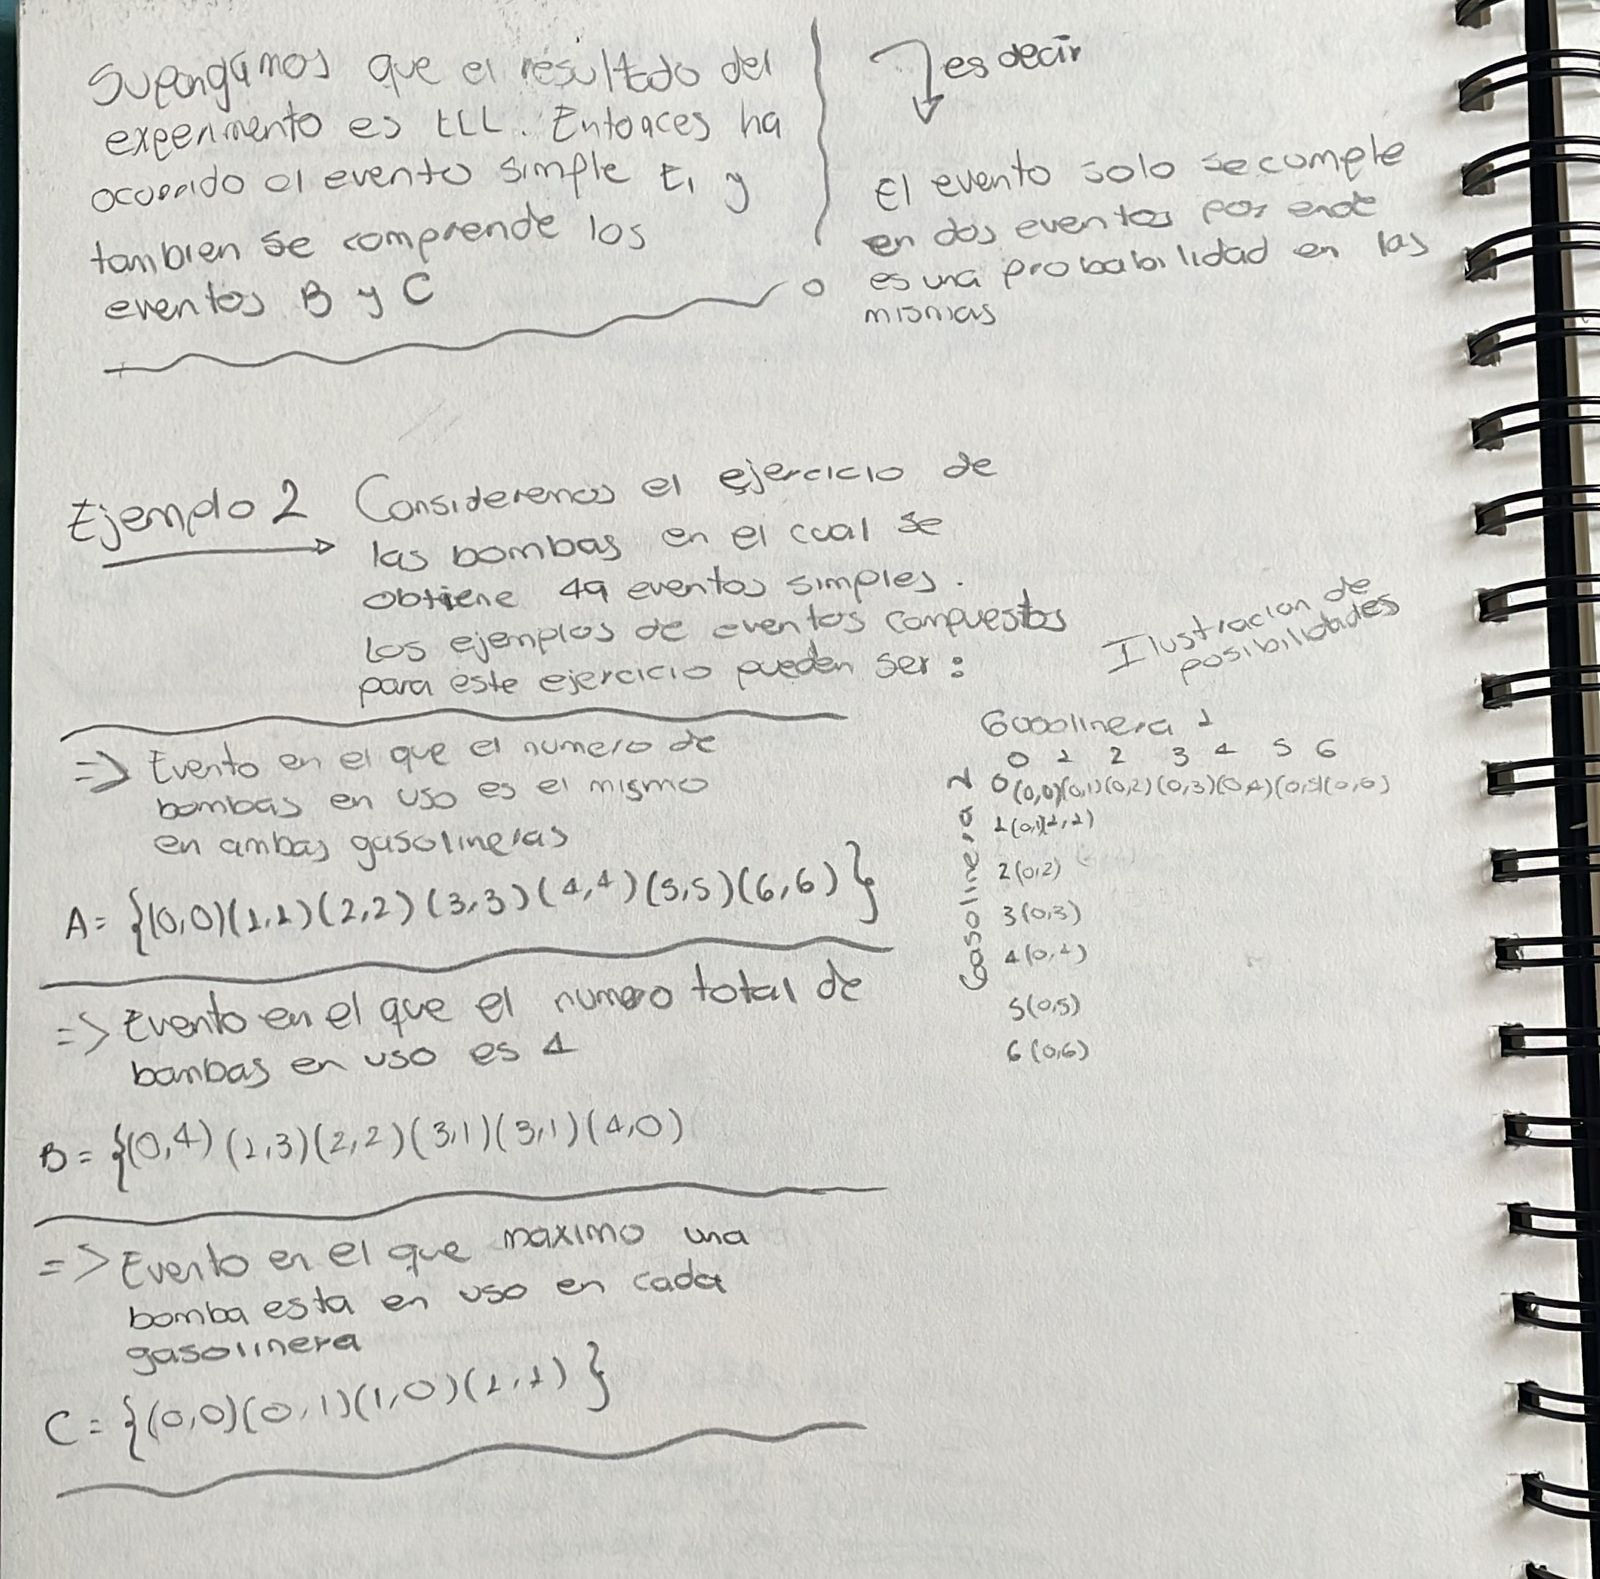 Supongamos que el resultado del
experimento es LLL. Entonces ha
ocurrido el evento simple E1 y
tambien se comprende los
eventos B y C
es decir
el evento solo se cumple
en dos eventos por ende
es una probabilidad en las
mismas
Ejemplo 2 Consideremos el ejercicio de
las bombas en el cual se
obtiene 49 eventos simples.
Los ejemplos de eventos compuestos
para este ejercicio pueden ser:
=> Evento en el que el numero de
bombas en uso es el mismo
en ambas gasolineras
A = {(0,0)(1,1)(2,2)(3,3)(4,4)(5,5)(6,6)}
=> Evento en el que el numero total de
bombas en uso es 4
B = {(0,4)(1,3)(2,2)(3,1)(3,1)(4,0)
=> Evento en el que maximo una
bomba esta en uso en cada
gasolinera
C = {(0,0)(0,1)(1,0)(1,1)}
Ilustracion de
posibilidades
Gasolinera 1
0 1 2 3 4 5 6
Gasolinera 2
0(0,0)(0,1)(0,2)(0,3)(0,4)(0,5)(0,6)
1(0,1)(1,1)
2(0,2)
3(0,3)
4(0,4)
5(0,5)
6(0,6)